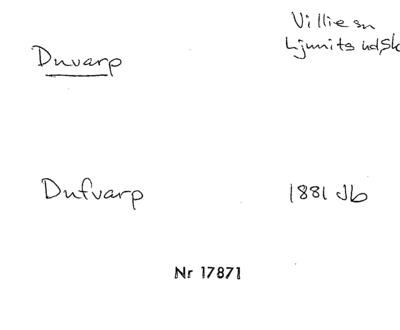 Villie sn
Ljunits hd, Sk
Duvarp
Dufvarp
1881 Jb
Nr 17871